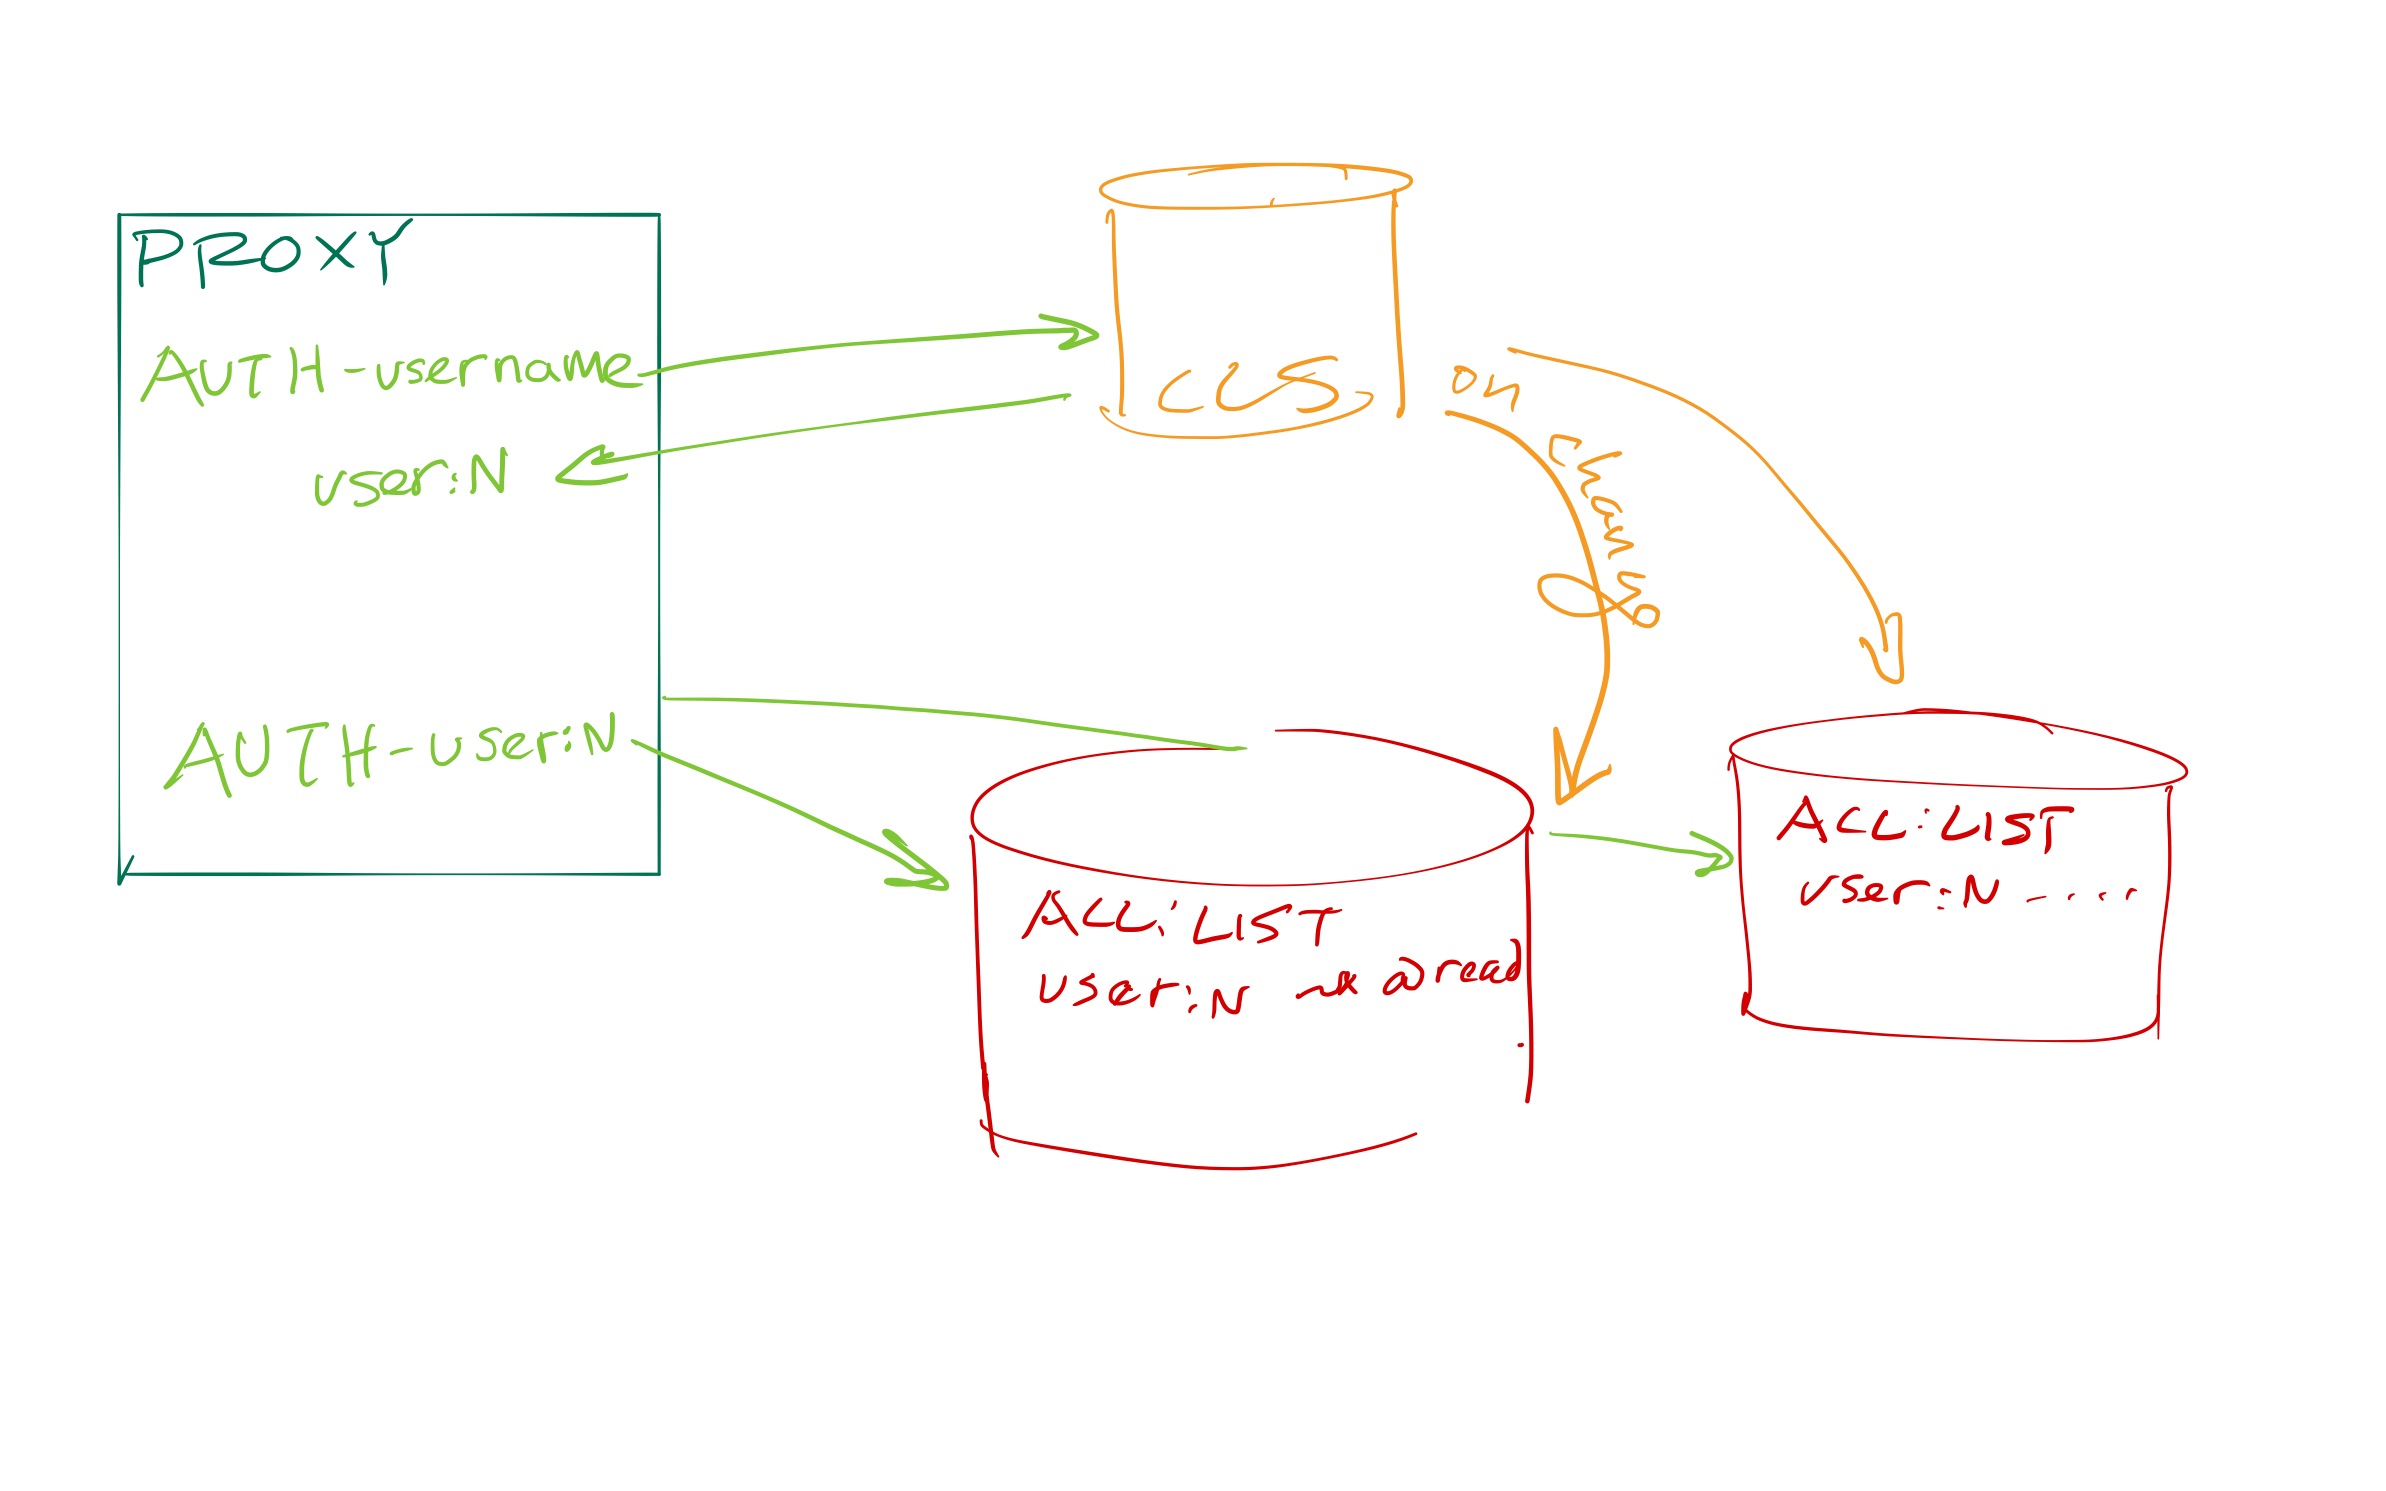 PROXY
AUTH-username
user:N
AUTH-user:N
CCS
on
change
ACL:LIST
user:N
ACL:LIST
user:N - ...